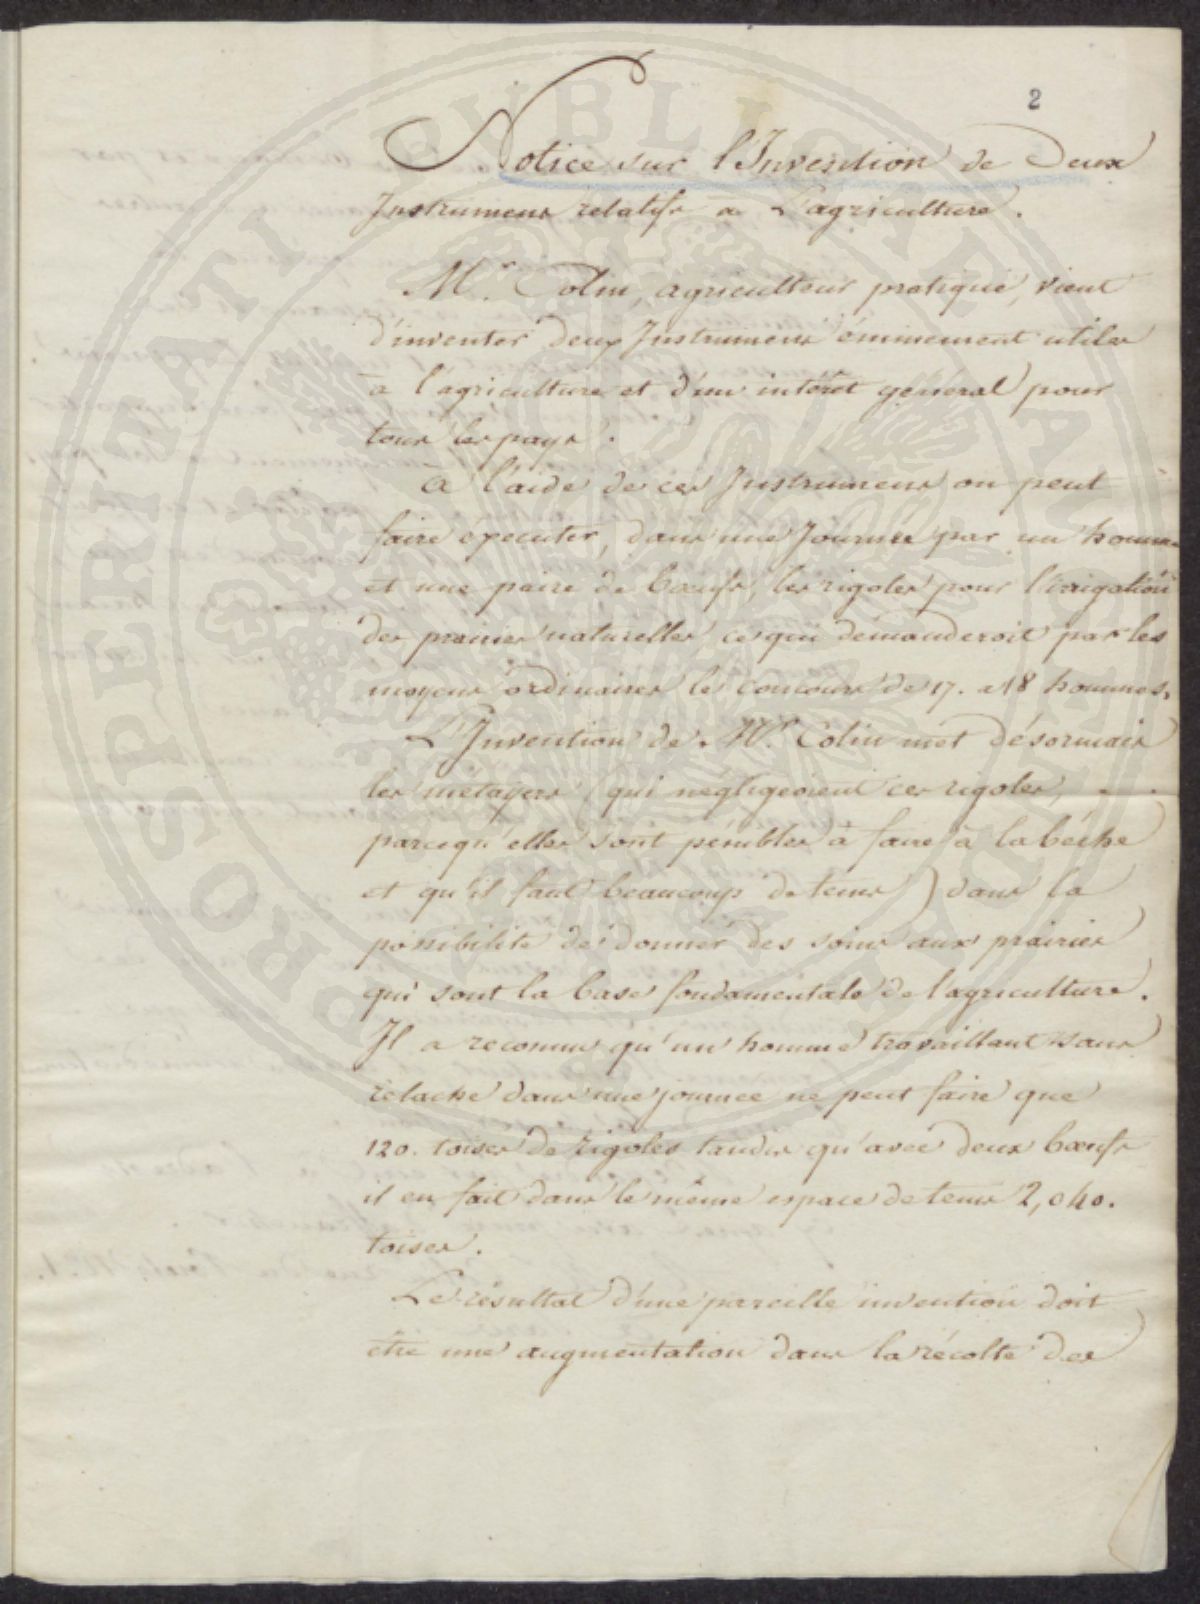 2
Notice sur l'Invention de Deux
Instrumens relatifs a L'agriculture.
Mr. Colin, agriculteur pratique, vient
d'inventer deux Instrumens éminement utiles
à l'agriculture et d'un intérêt général pour
tous les pays.
à l'aide de ces Instrumens on peut
faire éxecuter, dans une Journée par un homme
et une paire de boeufs, les rigoles pour l'irrigation
des prairies naturelles, ce qui démanderoit par les
moyens ordinaires le concours de 17. a 18 hommes.
L'Invention de Mr. Colin met désormais
les métayers (qui négligeoient ces rigoles,
parcequ'elles sont pénibles à faire à la béche
et qu'il faut beaucoup de tems) dans la
possibilité de donner des soins aux prairies
qui sont la base fondamentale de l'agriculture.
Il a reconnu qu'un homme travaillant sans
relache dans une journée ne peut faire que
120. toises de rigoles tandis qu'avec deux boeufs
il en fait dans le même espace de tems 2,040.
toises.
Le résultat d'une pareille invention doit
être une augmentation dans la récolte des
PROSPERITATI PUBLICAE AVGENDAE